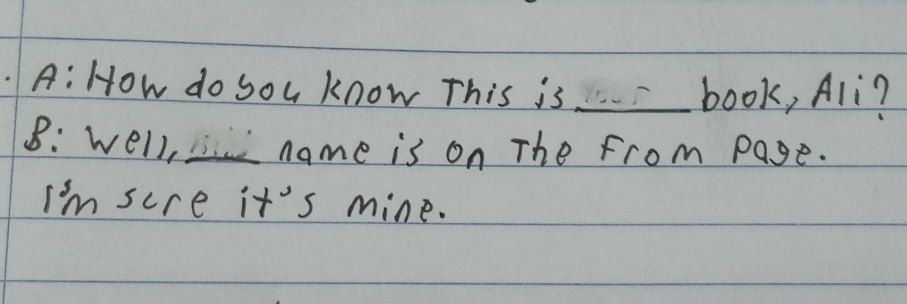 . A: How do you know This is ____ book, Ali?
B: Well, ____ name is on The From Page.
I'm sure it's mine.